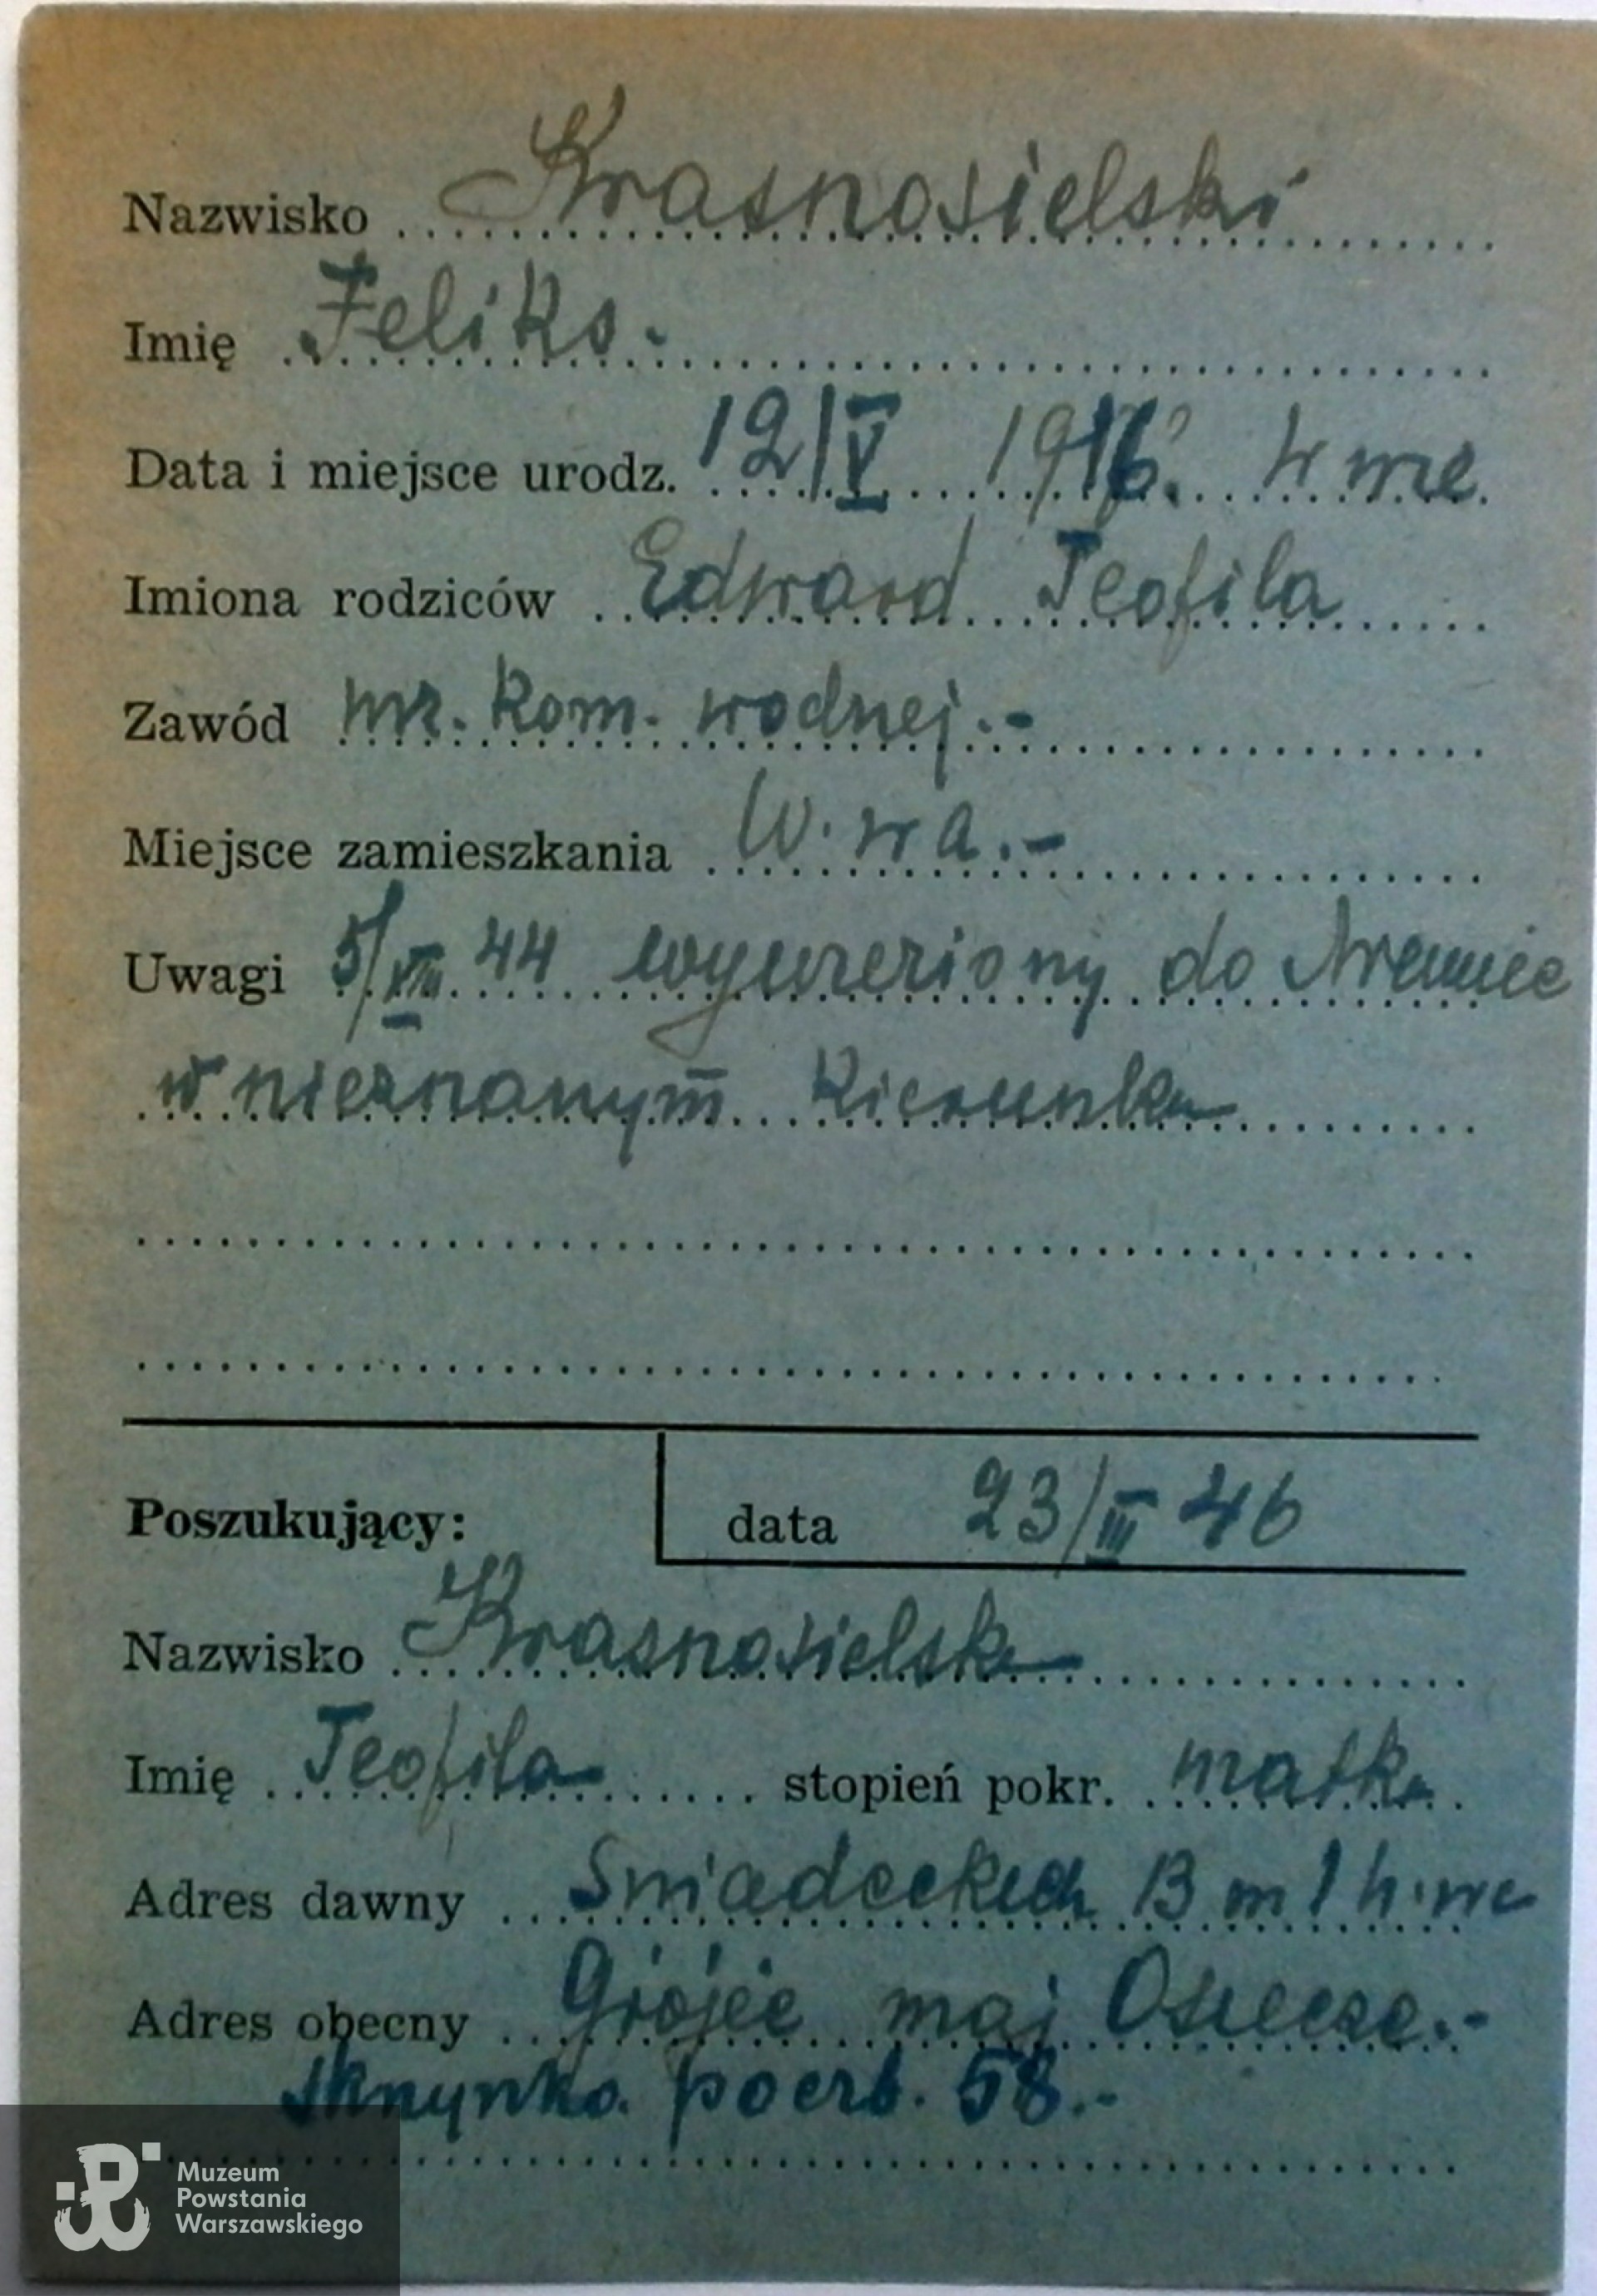 Nazwisko Krasnosielski
Imię Feliks.
Data i miejsce urodz. 12/V 1916. W-wa
Imiona rodziców Edward Teofila
Zawód kom. wodnej.-
Miejsce zamieszkania W-wa.-
Uwagi 5/VIII 44 wywieziony do Niemiec
w nieznanym kierunku
Poszukujący: data 23/III 46
Nazwisko Krasnosielska
Imię Teofila stopień pokr. matka
Adres dawny Sniadeckich 13 m 1 W-wa
Adres obecny Grójec maj Osiecza.-
skrynka poczt. 58.-
Muzeum
Powstania
Warszawskiego